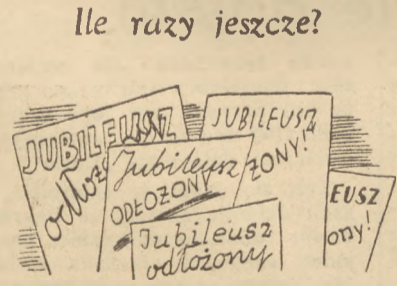 Ile razy jeszcze?
JUBILEUSZ
odłożony
JUBILEUSZ
ŻONY!"
Jubileusz
ODŁOŻONY
EUSZ
ony!
Jubileusz
odłożony